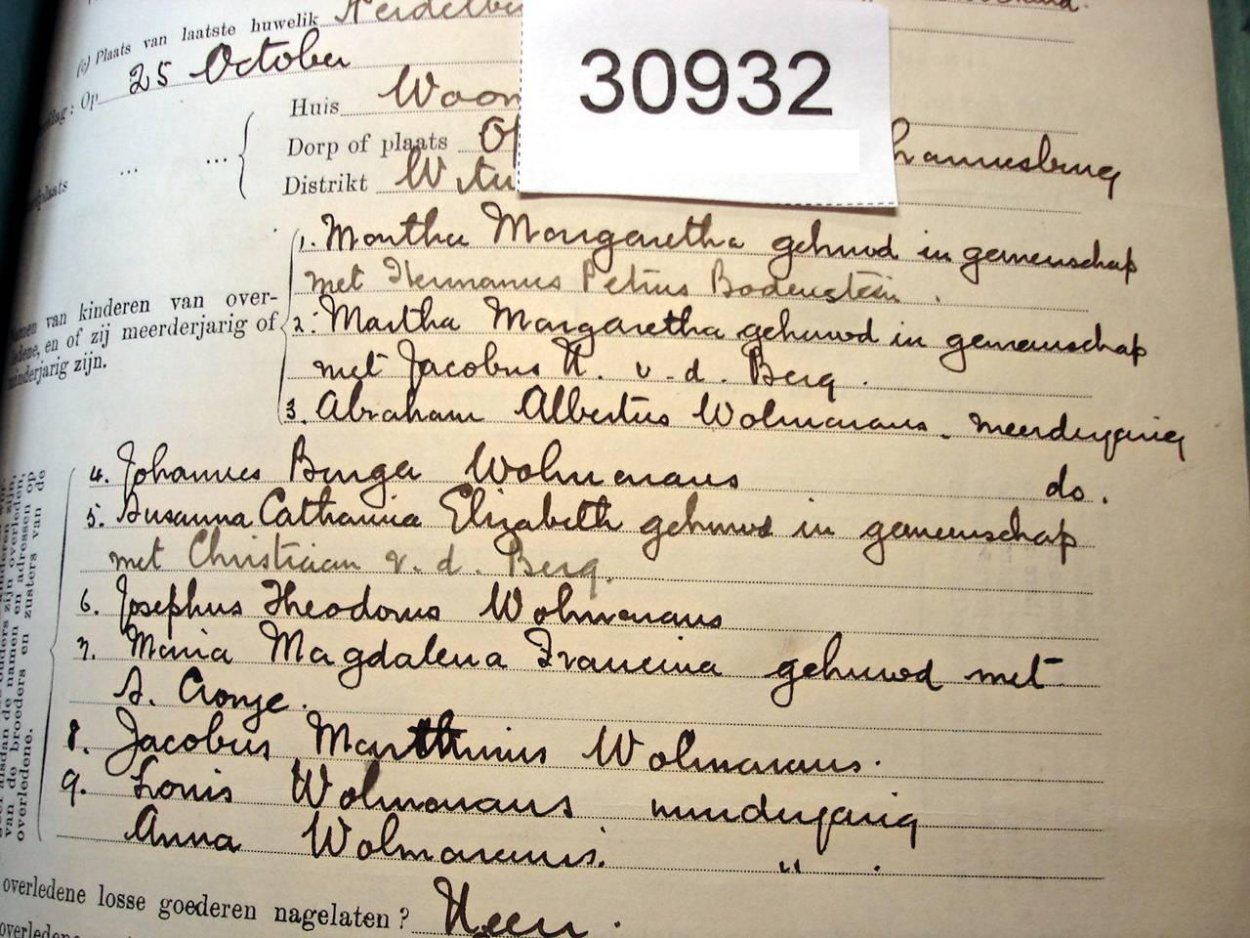 (c) Plaats van laatste huwelik Heidelbe
: Op 25 October
30932
Huis Woon
Dorp of plaats Op hannesburg
Distrikt Witw
... ...
1. Martha Margaretha gehuwd in gemeenschap
met Hermanus Petrus Bodenstein.
van kinderen van over-
ledene, en of zij meerderjarig of
minderjarig zijn.
2. Martha Margaretha gehuwd in gemeenschap
met Jacobus H. v. d. Berg.
3. Abraham Albertus Wolmarans. meerderjarig
4. Johannes Burger Wolmarans do.
5. Susanna Catharina Elizabeth gehuwd in gemeenschap
met Christiaan v. d. Berg.
6. Josephus Theodorus Wolmarans
7. Maria Magdalena Francina gehuwd met
S. Cronje.
8. Jacobus Marthinus Wolmarans.
9. Louis Wolmarans minderjarig
Anna Wolmarans. " .
alsdan de namen en adressen op
van de broeders en zusters van de
overledene.
overledene losse goederen nagelaten? Neen.